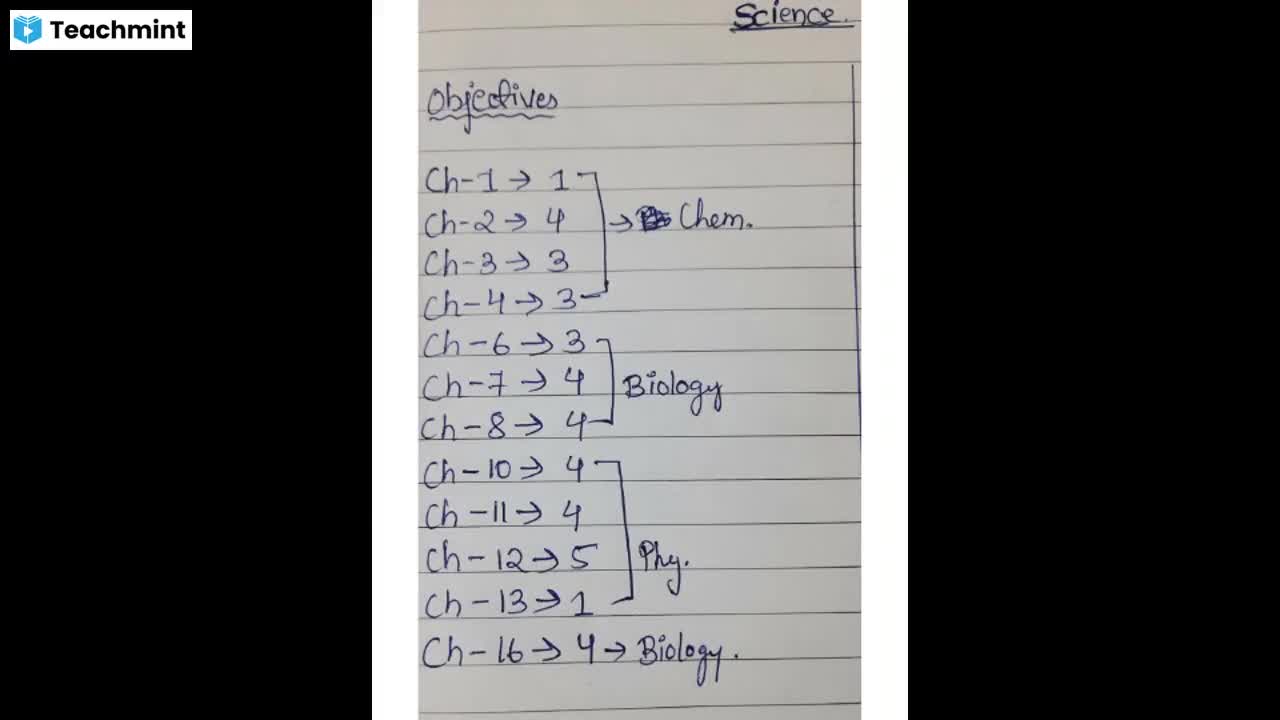 Teachmint
Science.
Objectives
Ch-1 → 1
Ch-2 → 4 → Chem.
Ch-3 → 3
Ch-4 → 3
Ch-6 → 3
Ch-7 → 4 Biology
Ch-8 → 4
Ch-10 → 4
Ch-11 → 4
Ch-12 → 5 Phy.
Ch-13 → 1
Ch-16 → 4 → Biology.